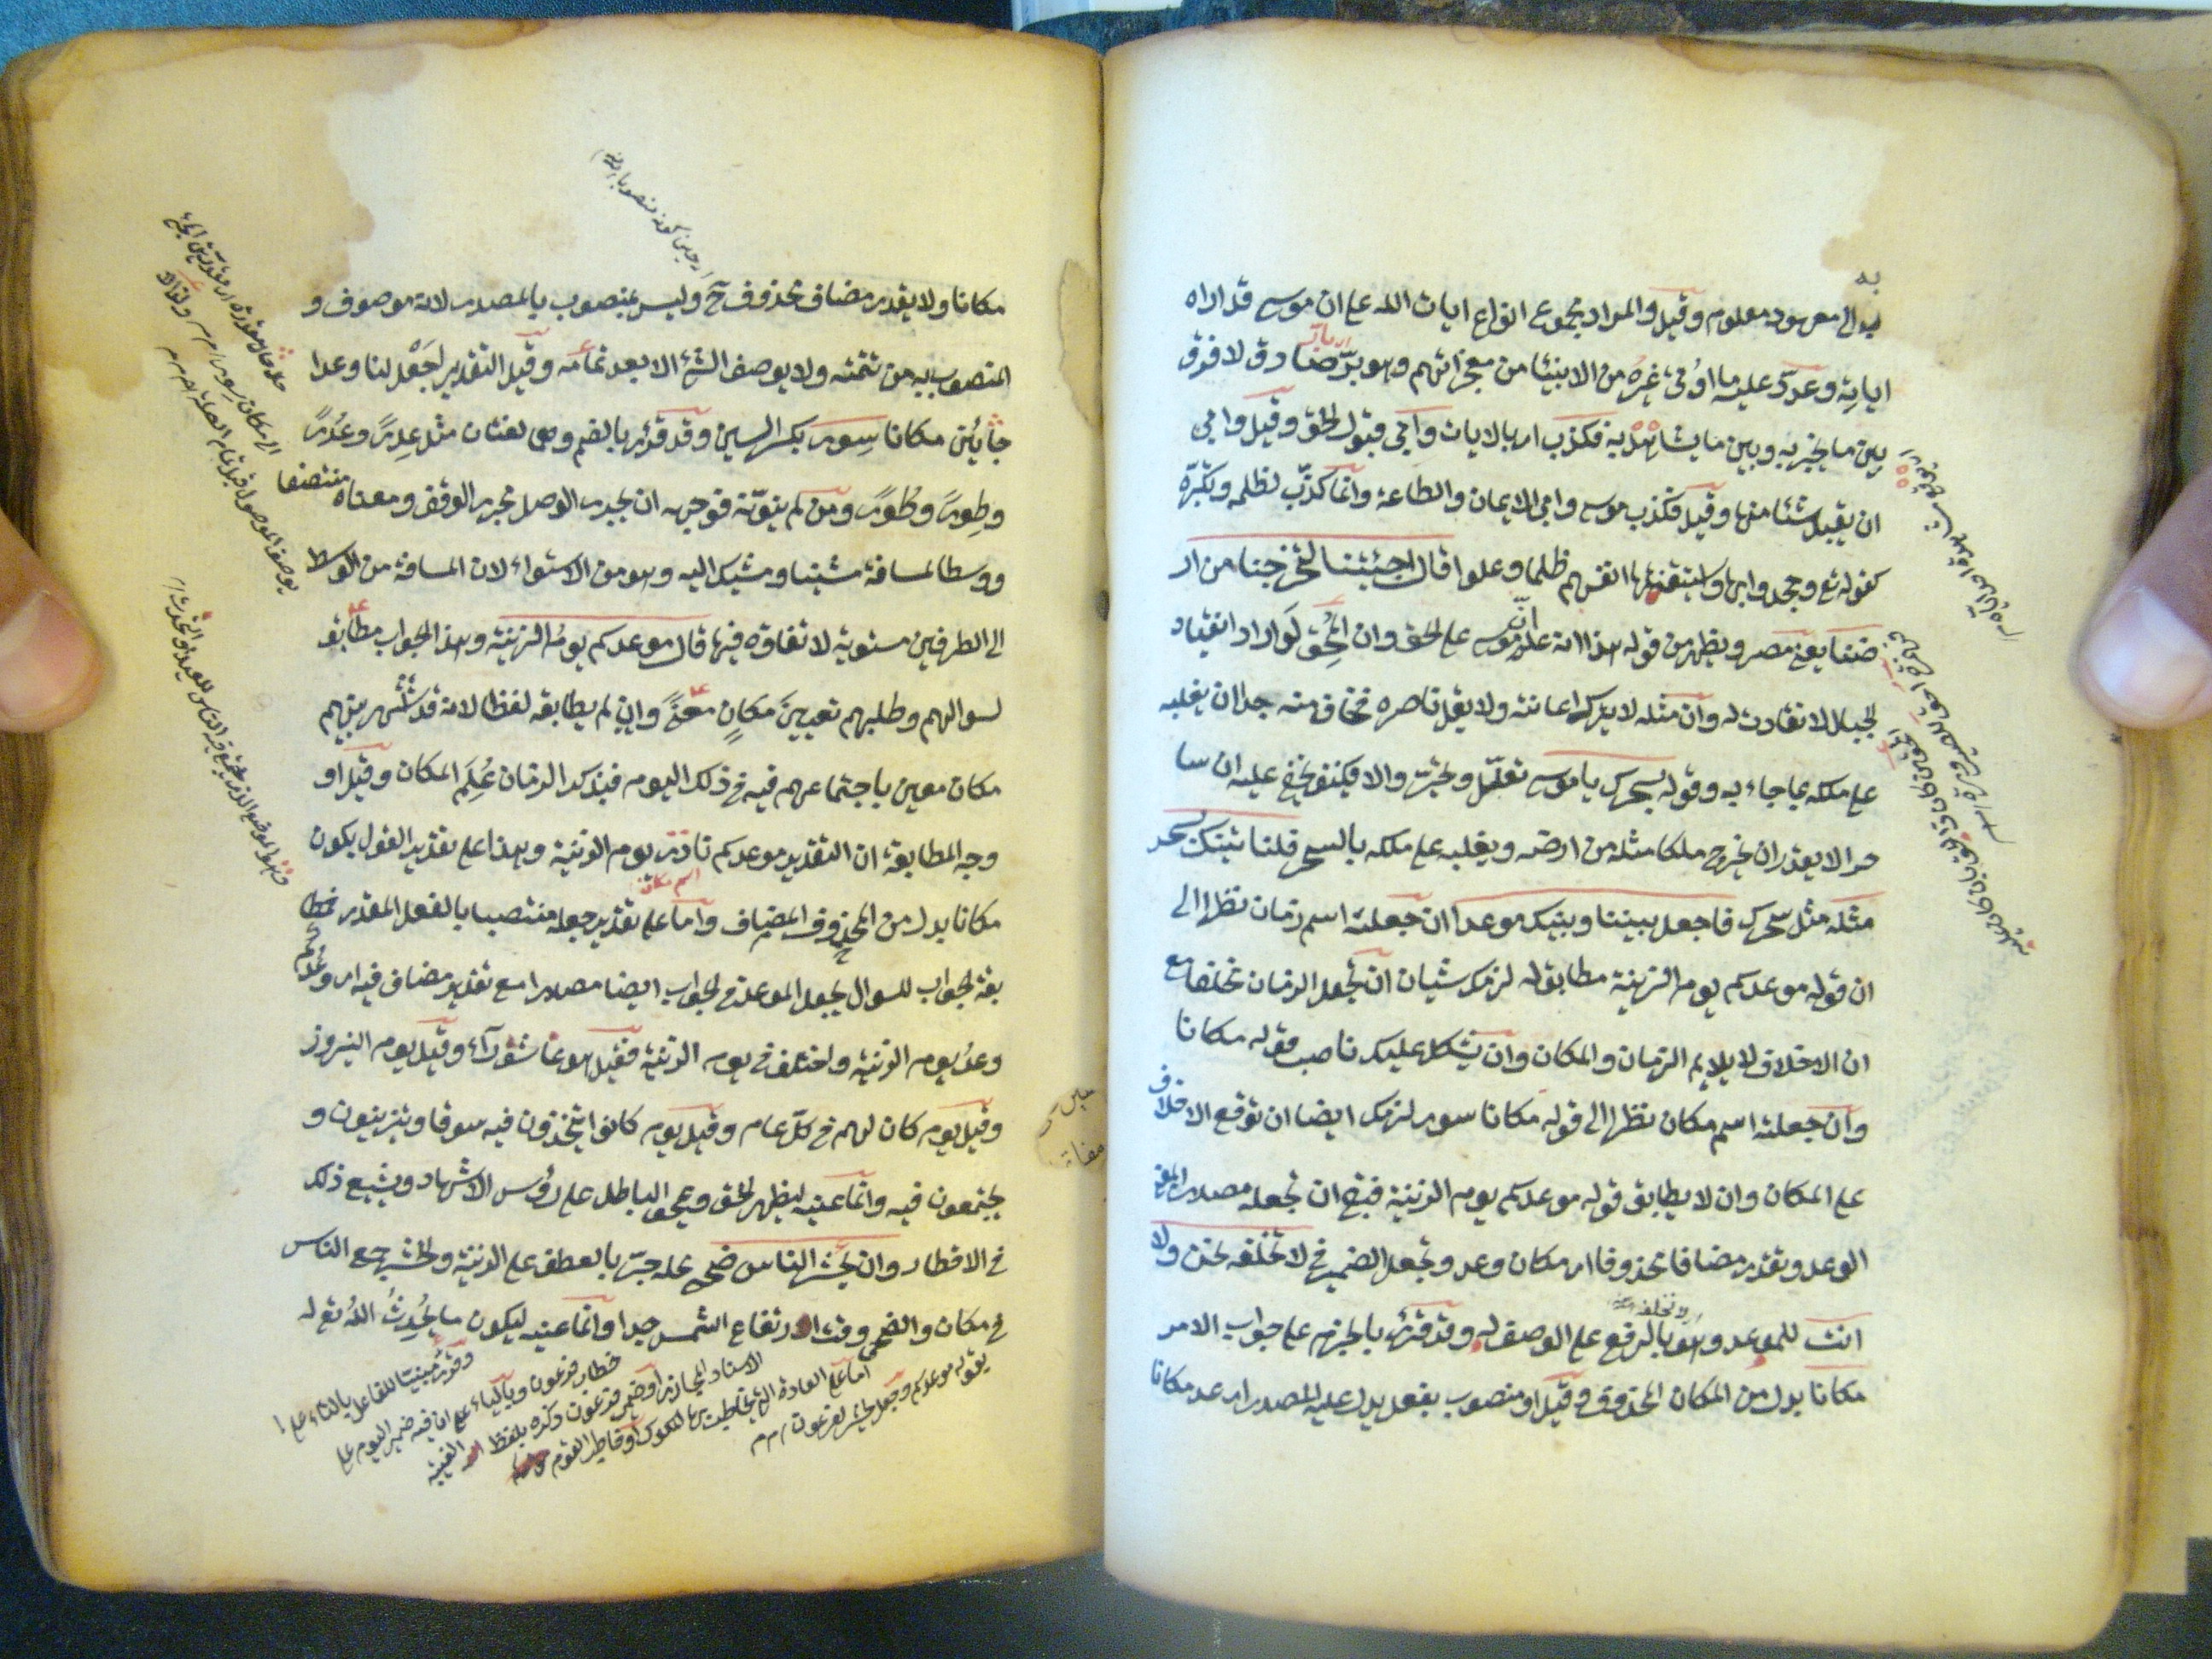 به الى معهود معلوم وقيل والمراد مجموع انواع ايات الله على ان موسى قد اراه
اياته وعدد عليه ما اوتى غيره من الانبيا من معجزاتهم وهو بر صادق لا فرق
بين ما يخبر به وبين ما يشاهد به فكذب اى بالايات وابى قبول الحق وقيل وابى
ان يقبل شئا منها وقيل فكذب موسى وابى الايمان والطاعة وانما كذب لظلمه وتكبره
كقوله تع وجحدوا بها واستيقنتها انفسهم ظلما وعلوا قال اجئتنا لتخرجنا من ار
ضنا يعنى مصر ويظهر من قوله هذا انه علم ان موسى على الحق وان المحق لو اراد انقياد
الجبال لانقادت له وان مثله لا يترك اعانته ولا يقل ناصره فخاف منه جدا ان يغلبه
على ملكه بما جاء به وقوله بسحرك يا موسى تعلل وتحير والا فكيف يخفى عليه ان سا
حرا لا يقدر ان يخرج ملكا مثله من ارضه ويغلبه على ملكه بالسحر فلناتينك بسحر
مثله مثل سحرك فاجعل بيننا وبينك موعدا ان جعلته اسم زمان نظرا الى
ان قوله موعدكم يوم الزينة مطابق له لزمك شيان ان تجعل الزمان مخلفا مع
ان الاخلاف لا يلايم الزمان والمكان وان يشكل عليك ناصب قوله مكانا
وان جعلته اسم مكان نظرا الى قوله مكانا سوى لزمك ايضا ان توقع الاخلاف
على المكان وان لا يطابق قوله موعدكم يوم الزينة فبقى ان تجعله مصدرا بمعنى
الوعد وتقدر مضافا محذوفا اى مكان وعد وتجعل الضمير فى لا نخلفه نحن ولا
انت للموعد وهو بالرفع على الوصف له وقد قرئ بالجزم على جواب الامر
مكانا بدل من المكان المحذوف وقيل او منصوب بفعل يدل عليه المصدر اى عد مكانا
مكانا ولا يقدر مضاف محذوف ح وليس بمنصوب بالمصدر لانه موصوف و
المنصوب به من تتمته ولا يوصف الشئ الا بعد تمامه وقيل التقدير اجعل لنا وعدا
جايئن مكانا سوى بكسر السين وقد قرئ بالضم وهى لغتان مثل عدى وعدى
وطوى وطوى ومن لم ينونه فوجهه ان يجرى الوصل مجرى الوقف ومعناه منتصفا
ووسطا لمسافة مشينا ومشيك اليه وهو من الاستواء لان المسافة من الوسط
الى الطرفين مستوية لا تفاوت فيها قال موعدكم يوم الزينة وهذا الجواب مطابق
لسوالهم وطلبهم تعيين مكان معنى وان لم يطابقه لفظا لانه قد اشتهر بينهم
مكان معين باجتماعهم فيه فى ذلك اليوم فبذكر الزمان علم المكان وقيل او
وجه المطابقة ان التقدير موعدكم يوم الزينة وهذا على تقدير القول بكون
مكانا بدل من المحذوف المضاف واما على تقدير جعله منتصبا بالفعل المقدر فمطا
بقة الجواب للسوال بجعل الموعد فى الجواب ايضا مصدرا مع تقدير مضاف فيه اى وعدكم
وعد يوم الزينة واختلف فى يوم الزينة فقيل هو عاشوراء وقيل يوم النيروز
وقيل يوم كان لهم فى كل عام وقيل يوم كانوا يتخذون فيه سوقا ويتزينون و
يجتمعون فيه وانما عينه ليظهر الحق ويمحق الباطل على رؤس الاشهاد ويشيع ذلك
فى الاقطار وان يحشر الناس ضحى محله جر بالعطف على الزينة والحشر جمع الناس
فى مكان والضحى وقت ارتفاع الشمس جدا وانما عينه ليكون ما يحدث الله تع له
وقرئ مبنيا للفاعل بالتاء على
خطاب فرعون وبالياء على ان فيه ضمير اليوم على
الاسناد المجازى او ضمير فرعون وذكره بلفظ الغيبة
اما على العادة التى يخاطب بها الملوك او خاطب القوم
بقوله موعدكم وجعل يحشر لفرعون